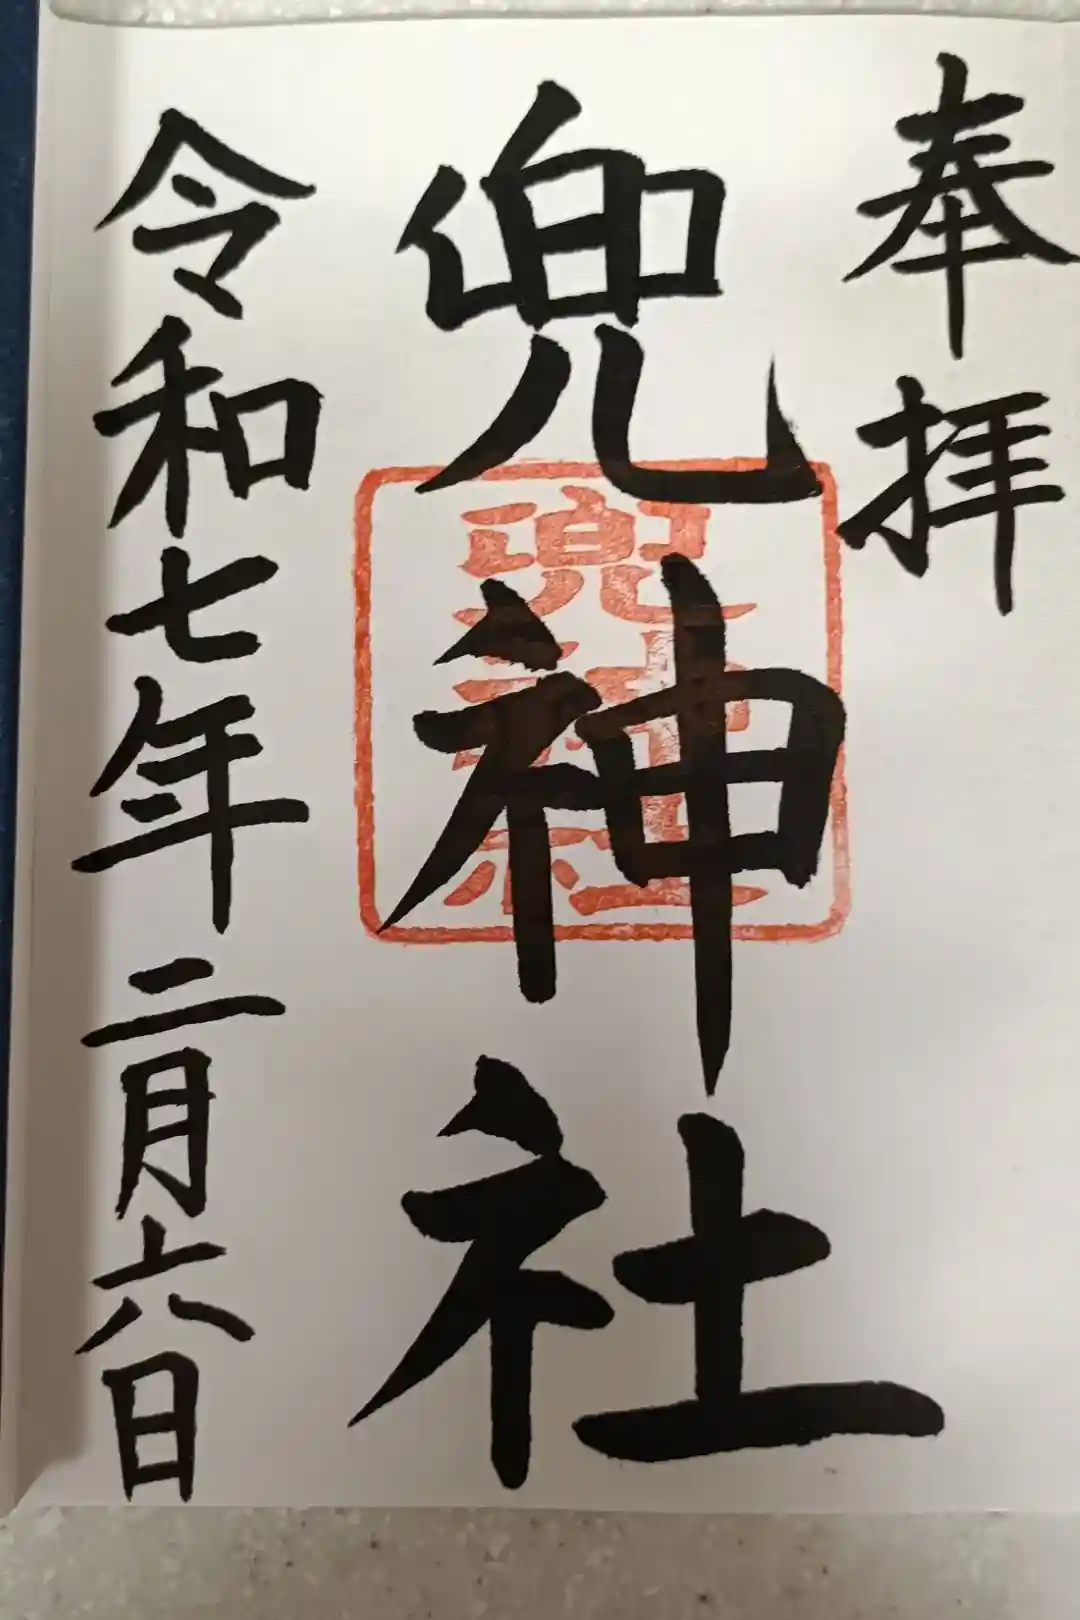 奉拝
兜神社
兜神社
令和七年二月六日